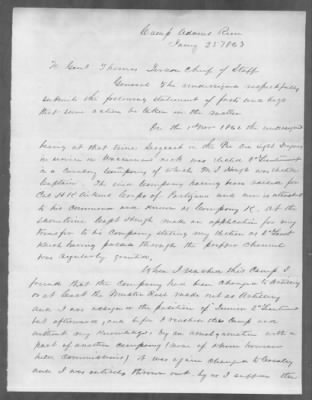 Camp Adams Run
Jany 25 1863
To Genl Thomas Jordan Chief of Staff
General The undersigned respectfully
submits the following statement of facts and begs
that some action be taken in the matter
On the 1st Nov 1862 the undersigned
being at that time Sergeant in the
in service in was elected 2d Lieutenant
in a Cavalry Company of which M J Hough was elected
Captain. The said Company having been raised for
Col H K Aikens Corps of Partizans and now is attached
to his command and known as Company K. At the
same time Capt Hough made an application for my
transfer to his Company stating my election as 2d Lieut
which having passed through the proper channel
was regularly granted.
When I reached this Camp I
found that the Company had been changed to Artillery
or at least the Muster Roll made out as Artillery
and I was assigned the position of Junior 2d Lieutenant
but afterwards, and before I reached this Camp and
without my knowledge, by an amalgamation with a
part of another company (none of whom however
held commissions) it was again changed to Cavalry
and I was entirely thrown out, by as I suppose the